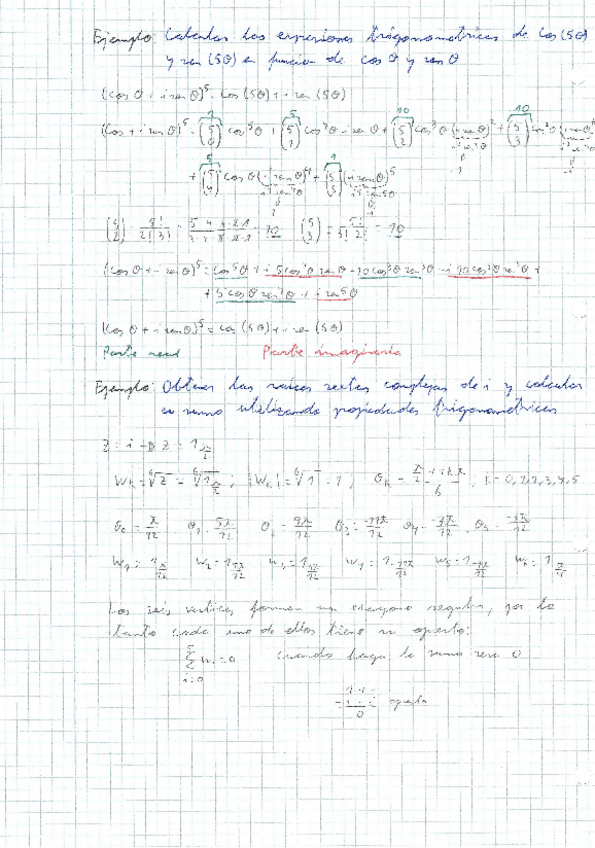 Ejemplo: Calcular las expresiones trigonometricas de cos (5θ)
y sen (5θ) en funcion de cos θ y sen θ
(cos θ + i sen θ)^5 = cos (5θ) + i sen (5θ)
1 5 10 10
(cos + i sen θ)^5 = (5 0) cos^5 θ + (5 1) cos^4 θ · i sen θ + (5 2) cos^3 θ (i sen θ)^2 + (5 3) cos^2 θ (i sen θ)^3
5 1
+ (5 4) cos θ (i sen θ)^4 + (5 5) (i sen θ)^5
(5 2) = 5!/(2! 3!) = = 10 (5 3) = 5!/(3! 2!) = 10
(cos θ + i sen θ)^5 = cos^5 θ + i 5 cos^4 θ sen θ - 10 cos^3 θ sen^2 θ - i 10 cos^2 θ sen^3 θ +
+ 5 cos θ sen^4 θ + i sen^5 θ
(cos θ + i sen θ)^5 = cos (5θ) + i sen (5θ)
Parte real Parte imaginaria
Ejemplo: Obtener las raices sextas complejas de i y calcular
su suma utilizando propiedades trigonometricas
z = i → z = 1_{π/2}
w_k = ⁶√z = ⁶√1_{π/2} ; |w_k| = ⁶√1 = 1 , θ_k = (π/2 + 2kπ)/6 , k = 0, 1, 2, 3, 4, 5
θ_0 = π/12 θ_1 = 5π/12 θ_2 = 9π/12 θ_3 = -11π/12 θ_4 = -7π/12 θ_5 = -3π/12
Los seis vertices forman un exagono regular, por lo
tanto cada uno de ellos tiene su opuesto:
Σ w_i = 0 cuando haga la suma sera 0
i=0
0